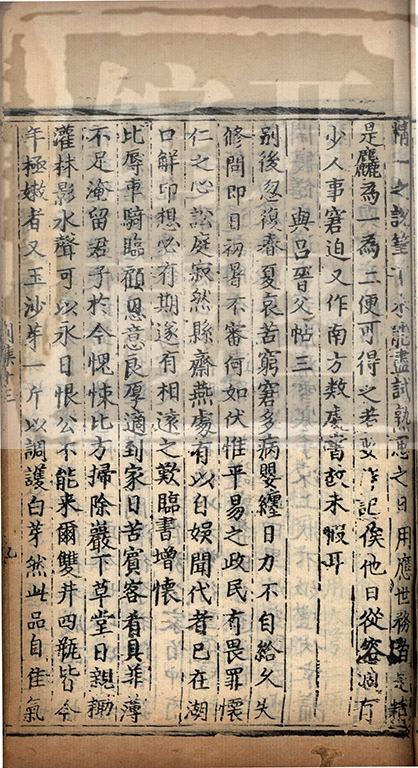 精一之說筆下不能盡試熟思之日用應世務者是精
是麤為一為二便可得之若要作記俟他日從容偶有
少人事窘迫又作南方數處書故未暇耳
與呂晉父帖三
别後忽復春夏哀苦窮窘多病嬰纏日力不自給久失
修問即日初暑不審何如伏惟平易之政民有畏罪懷
仁之心訟庭寂然縣齋燕處有以自娛聞代者已在湖
口解印想必有期遂有相遠之歎臨書增懷
比辱車騎臨顧恩意良厚適到家日苦賓客肴具菲薄
不足淹留君子於今愧悚比方掃除巖下草堂日親鋤
灌林影水聲可以永日恨公不能来爾雙井四瓶皆今
年極嫩者又玉沙芽一斤以調護白芽然此品自佳氣